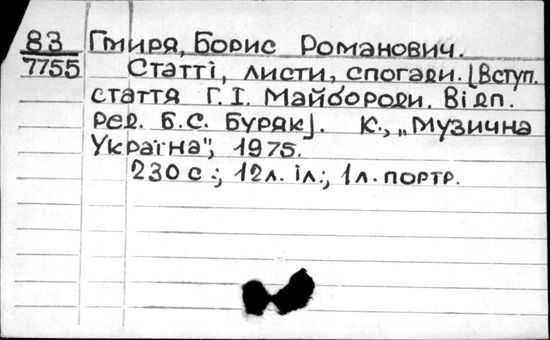 83 Гмиря, Борис Романович.
7755 Статті, листи, спогади. [Вступ.
стаття Г.І. Майбороди. Відп.
ред. Б.С. Буряк]. К., „Музична
Україна", 1975.
230 с.; 12л. іл.; 1л. портр.